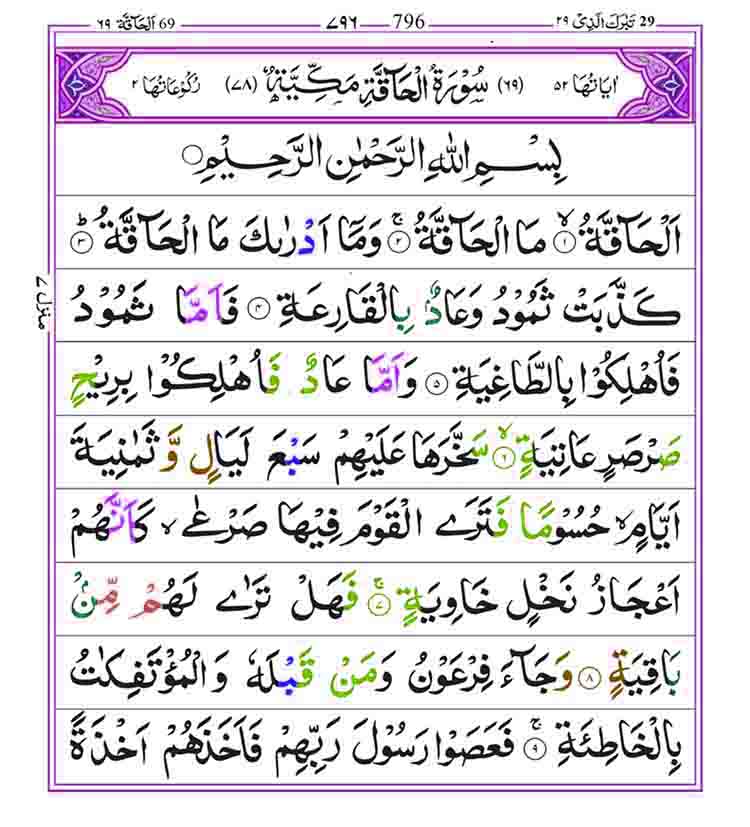 29 تَبٰرَكَ الَّذِيْ ٢٩ 796 ٧٩٦ 69 اَلْحَآقَّة ٦٩
اٰيَاتُهَا ٥٢ (٦٩) سُوْرَةُ الْحَآقَّةِ مَكِّيَّةٌ (٧٨) رُكُوْعَاتُهَا ٢
بِسْمِ اللّٰهِ الرَّحْمٰنِ الرَّحِيْمِ
اَلْحَآقَّةُ ۙ‏﴿١﴾ مَا الْحَآقَّةُ ۚ‏﴿٢﴾ وَمَآ اَدْرٰىكَ مَا الْحَآقَّةُ ؕ‏﴿٣﴾
كَذَّبَتْ ثَمُوْدُ وَعَادٌۢ بِالْقَارِعَةِ ﴿٤﴾ فَاَمَّا ثَمُوْدُ
فَاُهْلِكُوْا بِالطَّاغِيَةِ ﴿٥﴾ وَاَمَّا عَادٌ فَاُهْلِكُوْا بِرِيْحٍ
صَرْصَرٍ عَاتِيَةٍ ۙ‏﴿٦﴾ سَخَّرَهَا عَلَيْهِمْ سَبْعَ لَيَالٍ وَّ ثَمٰنِيَةَ
اَيَّامٍ ۙ حُسُوْمًا فَتَرَى الْقَوْمَ فِيْهَا صَرْعٰى ۙ كَاَنَّهُمْ
اَعْجَازُ نَخْلٍ خَاوِيَةٍ ۚ‏﴿٧﴾ فَهَلْ تَرٰى لَهُمْ مِّنْۢ
بَاقِيَةٍ ﴿٨﴾ وَجَآءَ فِرْعَوْنُ وَمَنْ قَبْلَهٗ وَالْمُؤْتَفِكٰتُ
بِالْخَاطِئَةِ ۚ‏﴿٩﴾ فَعَصَوْا رَسُوْلَ رَبِّهِمْ فَاَخَذَهُمْ اَخْذَةً
منزل ٧